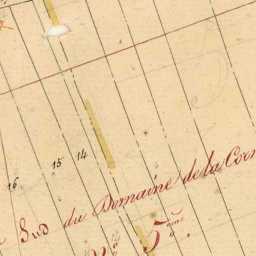 16 15 14
Sud du Domaine de la Corn
N° 5ème